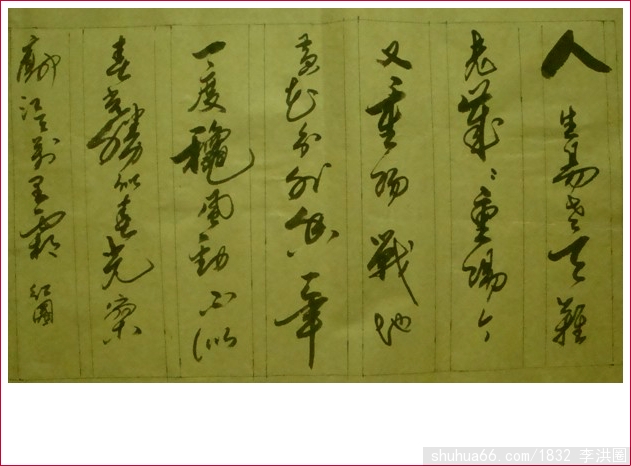 人生易老天難
老歲々重陽今
又重陽戰地
黃花分外香一年
一度龝風勁不似
春光勝似春光寥
廓江天萬里霜 洪圖
shuhua66.com/1832 李洪圖